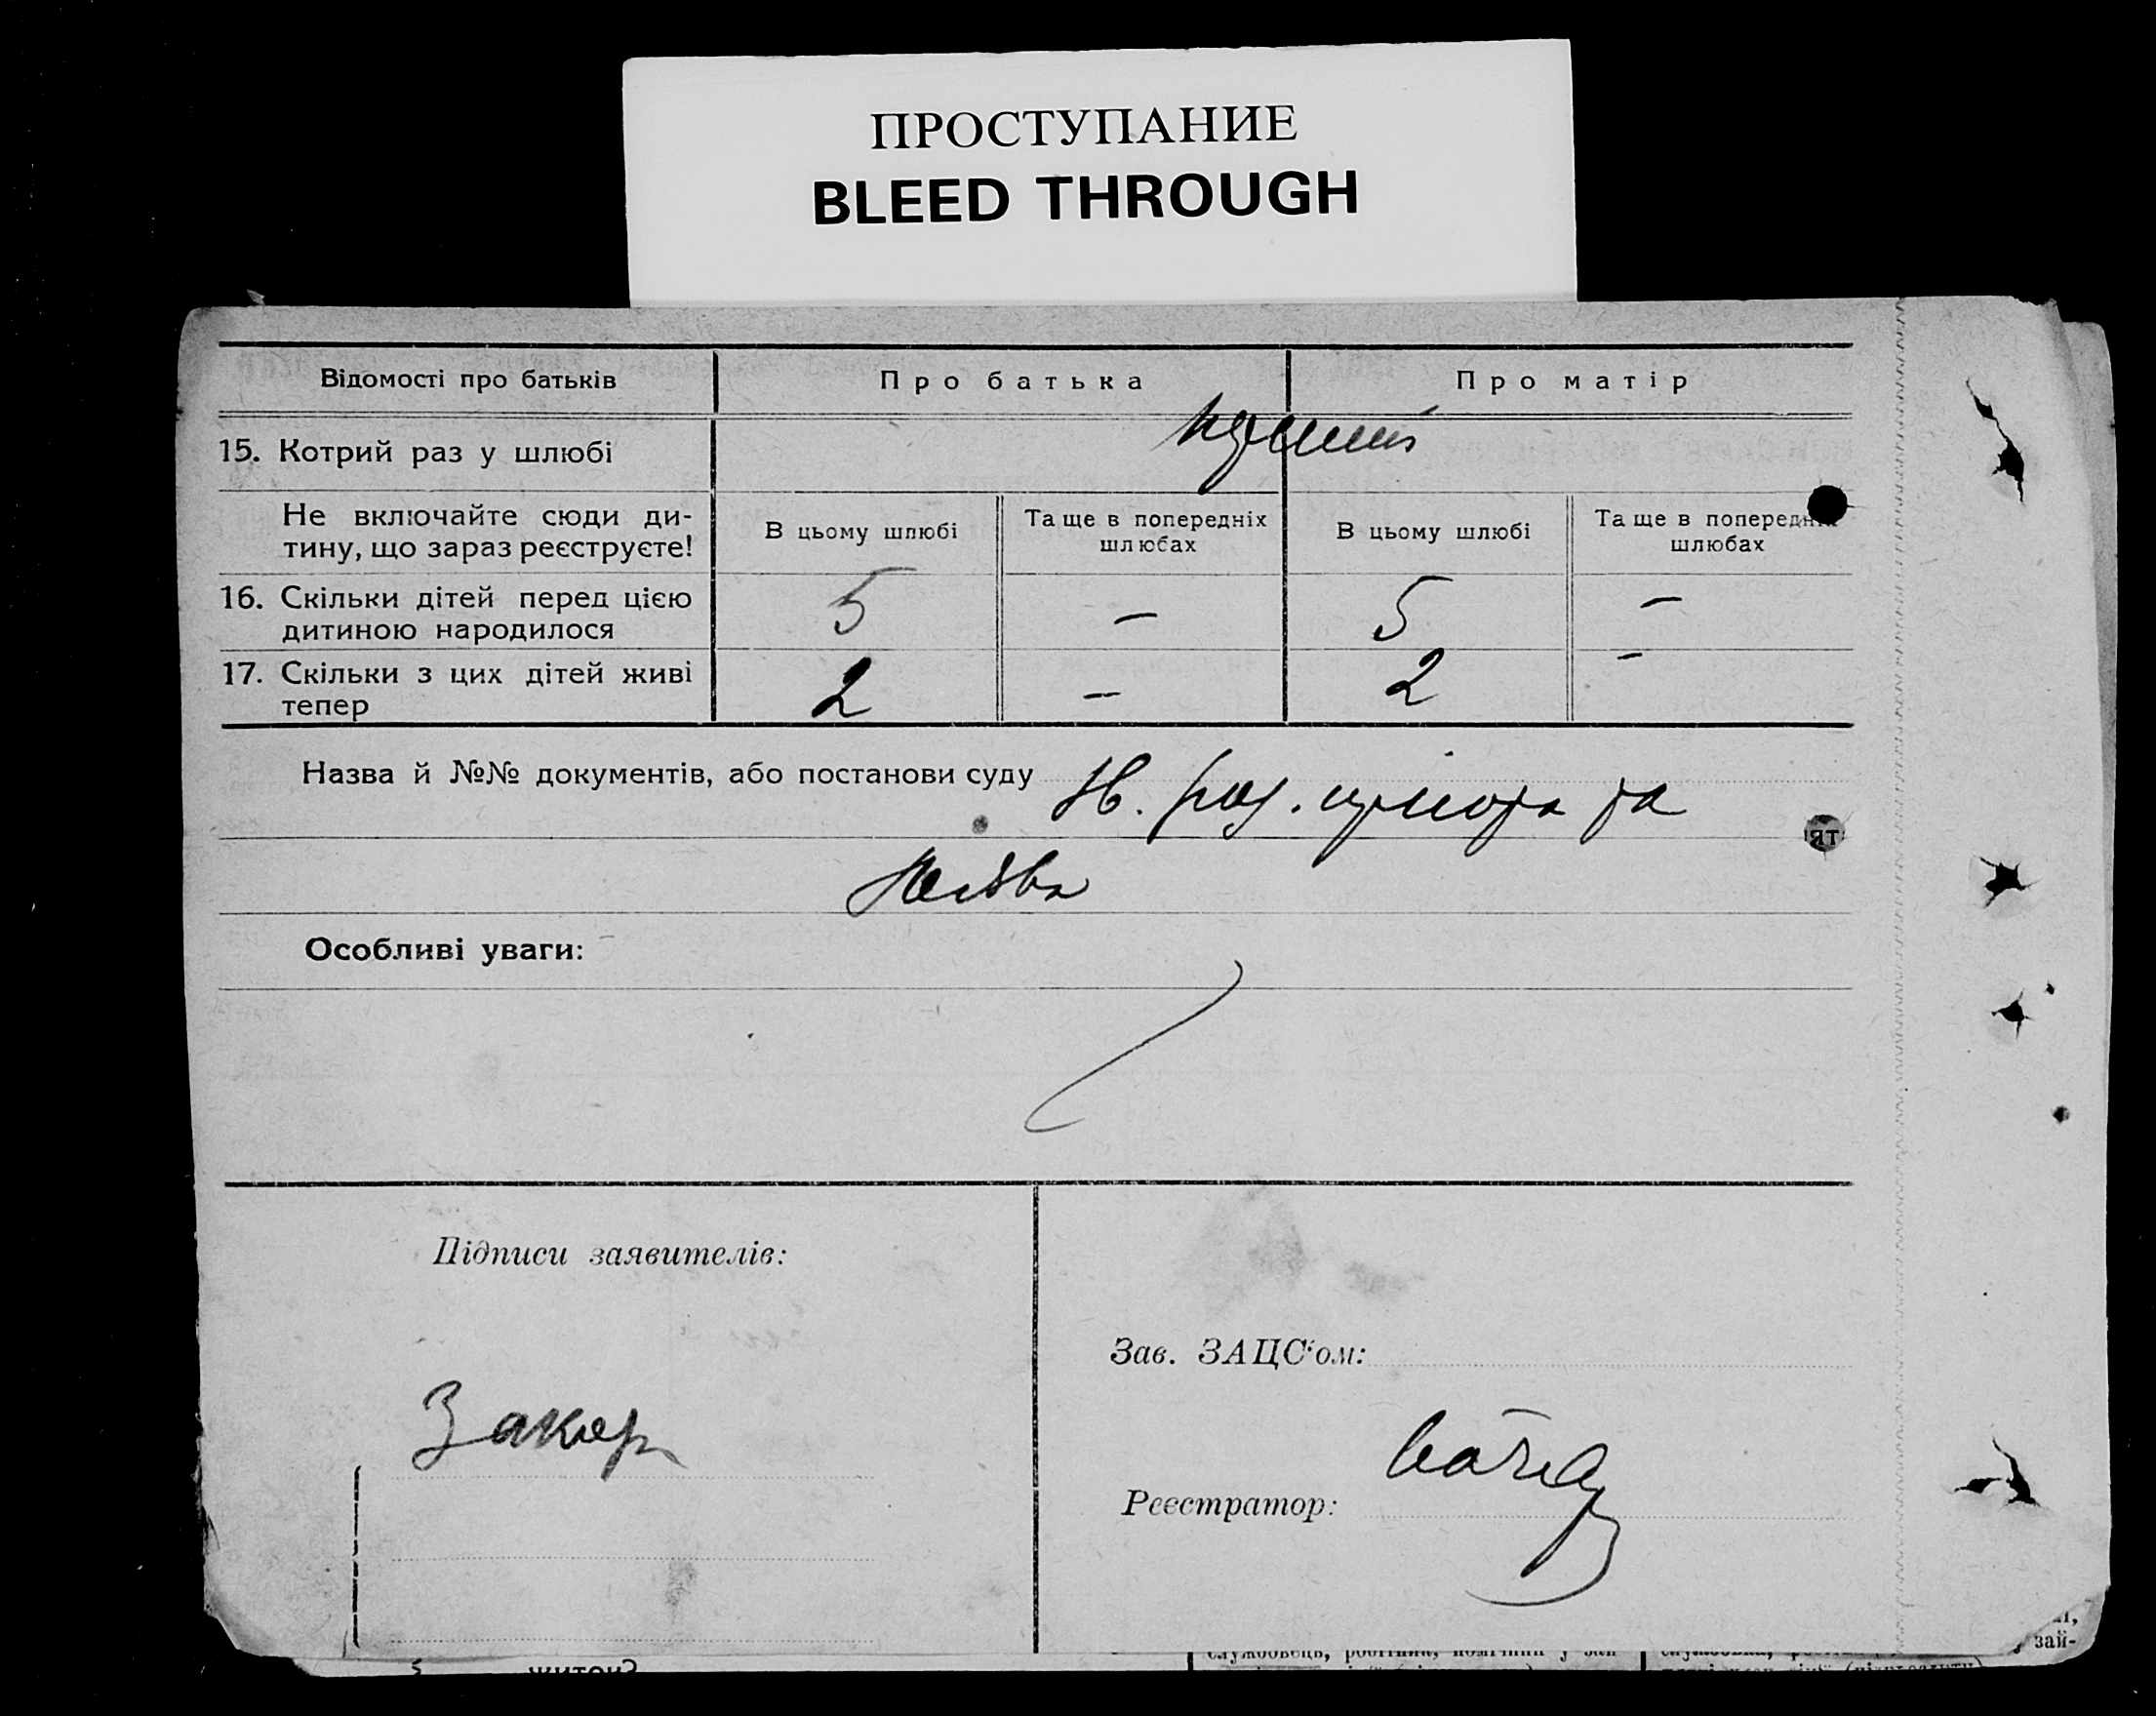 ПРОСТУПАНИЕ
BLEED THROUGH
Відомості про батьків
Про батька
Про матір
15. Котрий раз у шлюбі
Не включайте сюди ди-
тину, що зараз реєструєте!
В цьому шлюбі
Та ще в попередніх
шлюбах
В цьому шлюбі
Та ще в
шлюбах
16. Скільки дітей перед цією
дитиною народилося
5 — 5 —
17. Скільки з цих дітей живі
тепер
2 — 2 —
Назва й №№ документів, або постанови суду
ят
Особливі уваги:
Підписи заявителів:
Зав. ЗАЦС'ом:
Закер
Реєстратор:
зай-